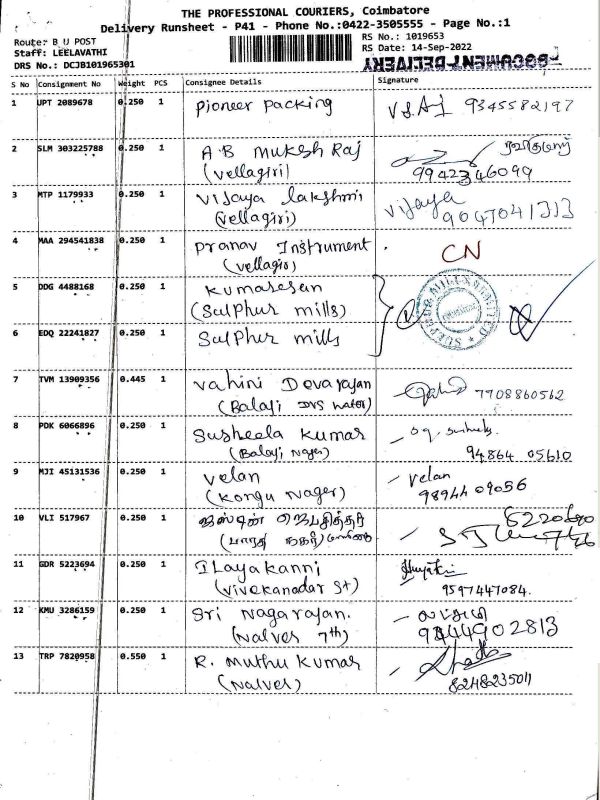 THE PROFESSIONAL COURIERS, Coimbatore
Delivery Runsheet - P41 - Phone No.:0422-3505555 - Page No.:1
Route: B U POST
RS No.: 1019653
Staff: LEELAVATHI
RS Date: 14-Sep-2022
DRS No.: DCJB101965301
DOCUMENT DELIVERY
S No Consignment No Weight PCS Consignee Details Signature
1 UPT 2089678 0.250 1 Pioneer packing 9345582197
2 SLM 303225788 0.250 1 A B Mukesh Raj
(vellagiri) 9942346099
3 MTP 1179933 0.250 1 Vijaya lakshmi Vijaya
(vellagiri) 9047041313
4 MAA 294541838 0.250 1 Pranav Instrument CN
(vellagiri)
5 DDG 4488168 0.250 1 Kumaresan
(Sulphur mills)
6 EDQ 22241827 0.250 1 Sulphur mills
7 TVM 13909356 0.445 1 Vahini Devarajan 7708860562
(Balaji
8 PDK 6066896 0.250 1 Susheela Kumar
(Balaji Nager) 94864 05610
9 MJI 45131536 0.250 1 Velan Velan
(Kongu Nager) 98944 09056
10 VLI 517967 0.250 1 ஜஸ்டின் ஜெபசித்தர்
(பாரதி நகர்)
11 GDR 5223694 0.250 1 Ilayakanni
(Vivekanadar St) 9597447084.
12 KMU 3286159 0.250 1 Sri Nagarajan. லட்சுமி
(Nalver 7th) 9444902813
13 TRP 7820958 0.550 1 R. Muthu Kumar
(Nalver) 8248235011